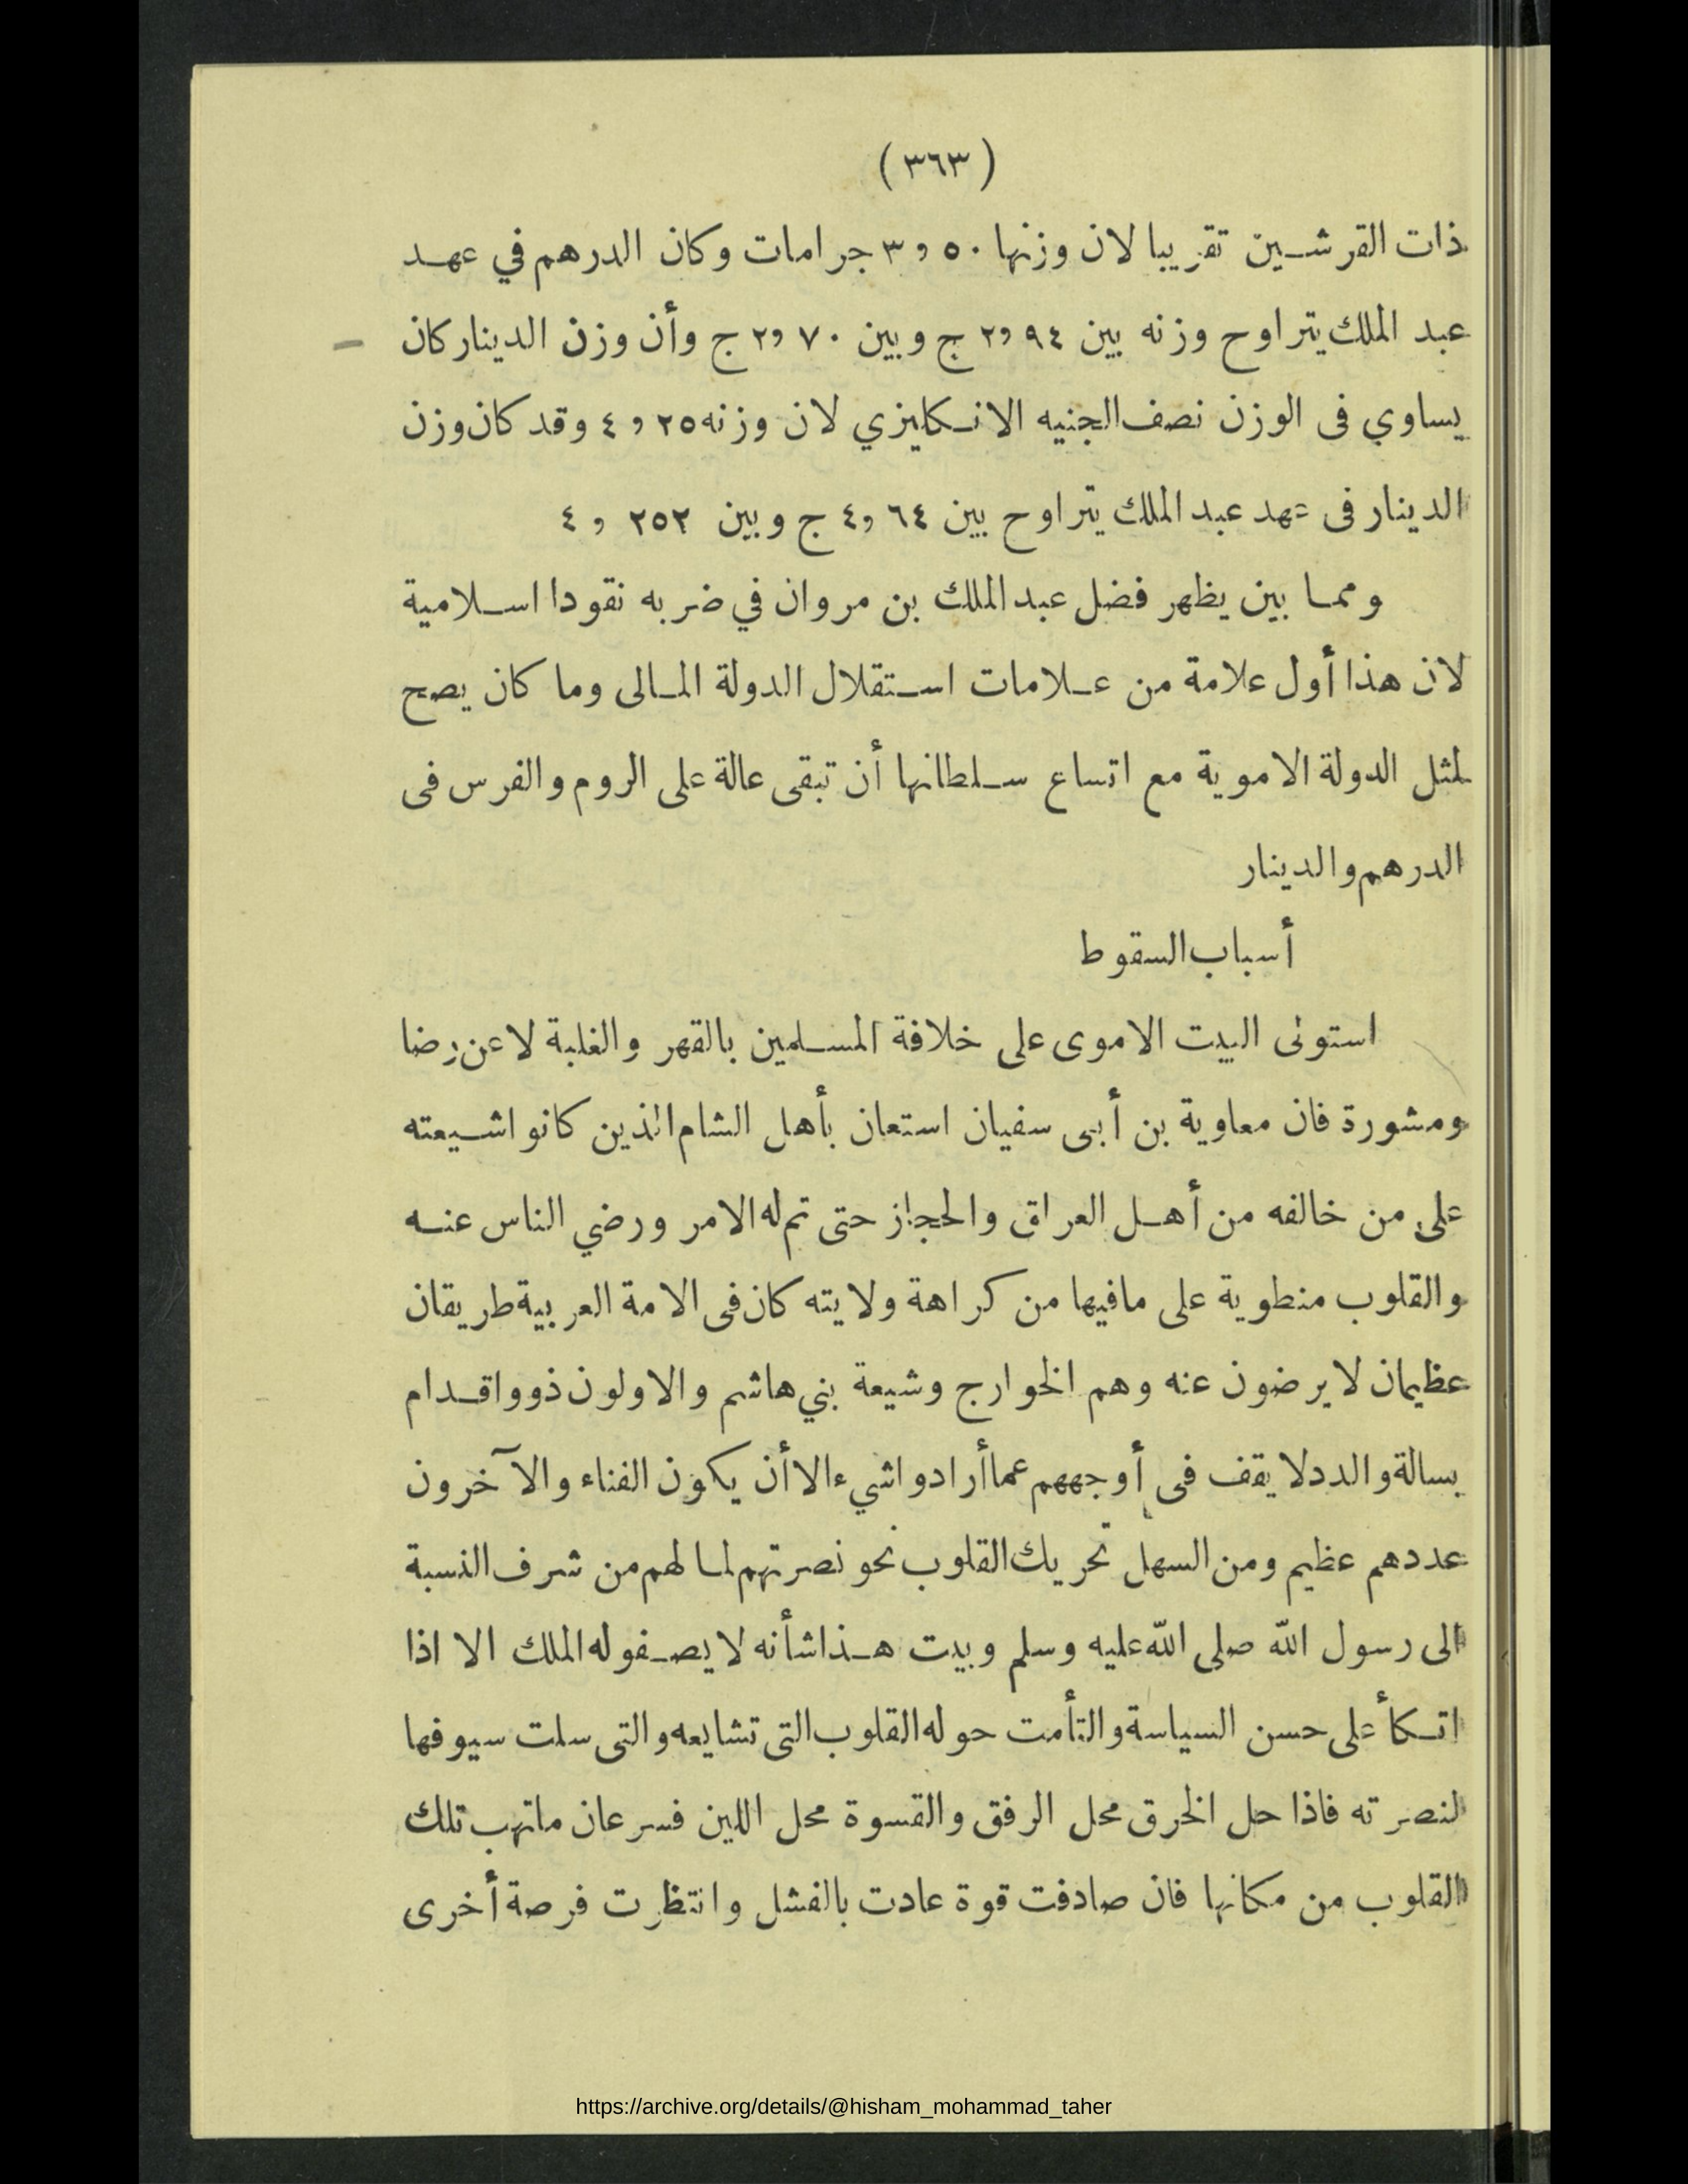 (٣٦٣)
ذات القرشين تقريبا لان وزنها ٣,٥٠ جرامات وكان الدرهم في عهد
عبد الملك يتراوح وزنه بين ٢,٩٤ ج وبين ٢,٧٠ ج وأن وزن الدينار كان
يساوي فى الوزن نصف الجنيه الانكليزي لان وزنه ٤,٢٥ وقد كان وزن
الدينار فى عهد عبد الملك يتراوح بين ٤,٦٤ ج وبين ٤,٢٥٢
ومما بين يظهر فضل عبد الملك بن مروان في ضربه نقودا اسلامية
لان هذا أول علامة من علامات استقلال الدولة المالى وما كان يصح
لمثل الدولة الاموية مع اتساع سلطانها أن تبقى عالة على الروم والفرس فى
الدرهم والدينار
أسباب السقوط
استولى البيت الاموى على خلافة المسلمين بالقهر والغلبة لا عن رضا
ومشورة فان معاوية بن أبى سفيان استعان بأهل الشام الذين كانوا شيعته
على من خالفه من أهل العراق والحجاز حتى تم له الامر ورضي الناس عنه
والقلوب منطوية على مافيها من كراهة ولايته كان فى الامة العربية طريقان
عظيمان لا يرضون عنه وهم الخوارج وشيعة بني هاشم والاولون ذوو اقدام
بسالة والدد لا يقف فى أوجههم عما أرادوا شيء الا أن يكون الفناء والآخرون
عددهم عظيم ومن السهل تحريك القلوب نحو نصرتهم لما لهم من شرف النسبة
الى رسول الله صلى الله عليه وسلم وبيت هذا شأنه لا يصفو له الملك الا اذا
اتكأ على حسن السياسة والتأمت حوله القلوب التى تشايعه والتى سلت سيوفها
لنصرته فاذا حل الخرق محل الرفق والقسوة محل اللين فسرعان ماتهب تلك
القلوب من مكانها فان صادفت قوة عادت بالفشل وانتظرت فرصة أخرى
https://archive.org/details/@hisham_mohammad_taher